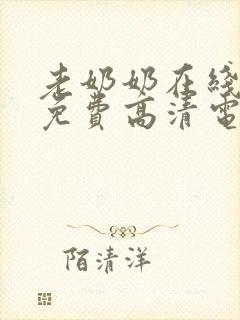 老奶奶在线
免費高清電
陌清洋